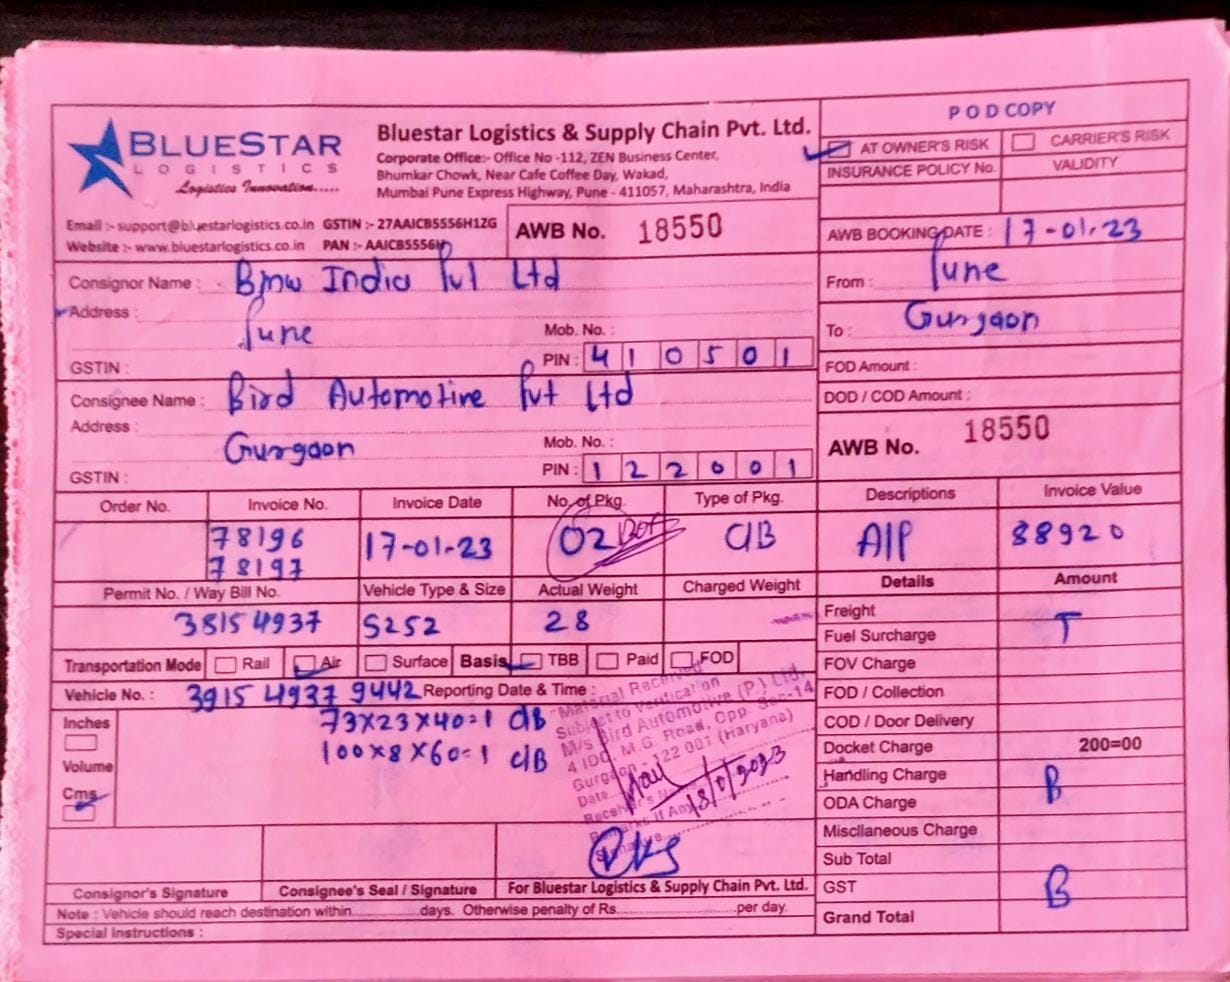 BLUESTAR
LOGISTICS
Logistics Innovation.....
Bluestar Logistics & Supply Chain Pvt. Ltd.
Corporate Office:- Office No -112, ZEN Business Center,
Bhumkar Chowk, Near Cafe Coffee Day, Wakad,
Mumbai Pune Express Highway, Pune - 411057, Maharashtra, India
Email :- support@bluestarlogistics.co.in GSTIN :- 27AAICB5556H1ZG
Website :- www.bluestarlogistics.co.in PAN :- AAICB5556H
AWB No. 18550
POD COPY
AT OWNER'S RISK CARRIER'S RISK
INSURANCE POLICY No. VALIDITY
AWB BOOKING DATE : 17-01-23
From : Pune
To : Gurgaon
FOD Amount :
DOD / COD Amount :
AWB No. 18550
Consignor Name : Bmw India Pvt Ltd
Address :
Pune Mob. No. :
GSTIN : PIN : 410501
Consignee Name : Bird Automotive Pvt Ltd
Address :
Gurgaon Mob. No. :
GSTIN : PIN : 122001
Order No. Invoice No. Invoice Date No. of Pkg. Type of Pkg. Descriptions Invoice Value
78196 17-01-23 02 C/B A/P 88920
78197
Permit No. / Way Bill No. Vehicle Type & Size Actual Weight Charged Weight Details Amount
3815 4937 S252 28
Freight
Fuel Surcharge T
FOV Charge
FOD / Collection
COD / Door Delivery
Docket Charge 200=00
Handling Charge B
ODA Charge
Miscllaneous Charge
Sub Total
GST B
Grand Total
Transportation Mode Rail Air Surface Basis TBB Paid FOD
Vehicle No. : 3915 4937 9442 Reporting Date & Time :
Inches
Volume
Cms
73x23x40=1 C/B
100x8x60=1 C/B
"Material Received
Subject to Verification
M/s Bird Automotive (P.) Ltd.
4 IDC, M.G. Road, Opp. Sec-14
Gurgaon - 122 001 (Haryana)
Date
Receiver's
Remarks If Any
Signature
Consignor's Signature Consignee's Seal / Signature For Bluestar Logistics & Supply Chain Pvt. Ltd.
Note : Vehicle should reach destination within..............days. Otherwise penalty of Rs..........................per day.
Special Instructions :